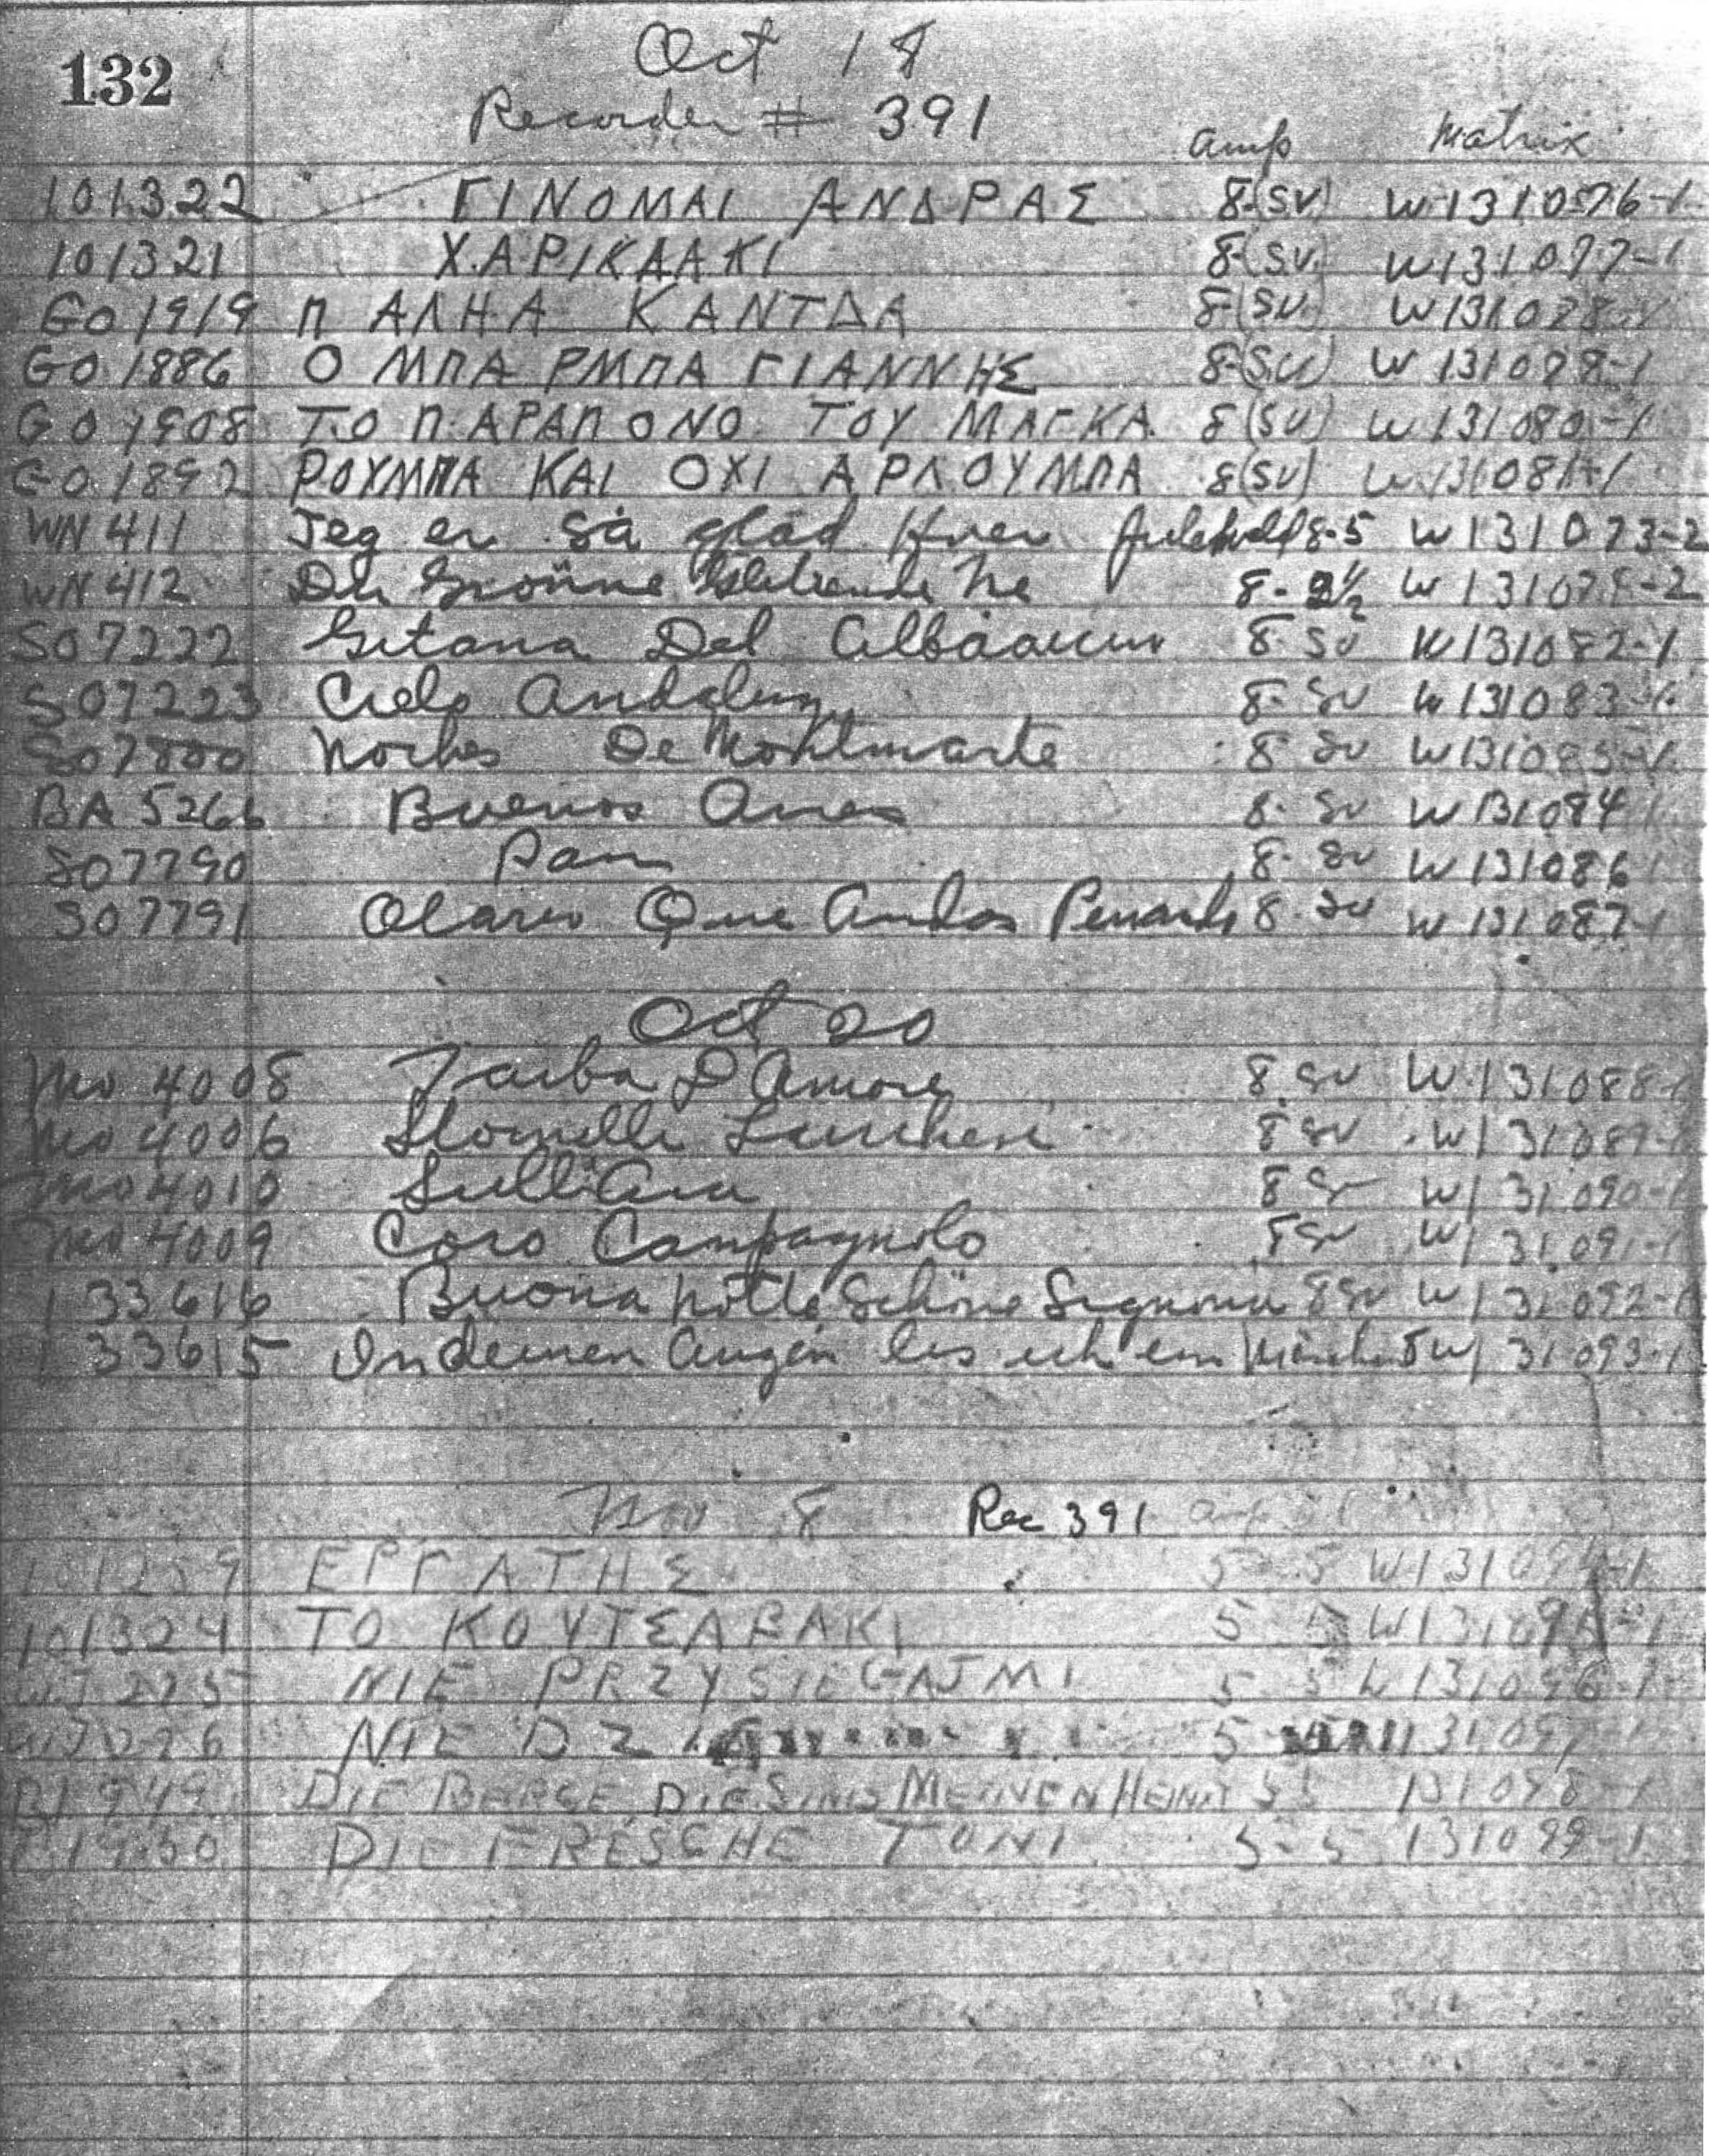 132
Oct 18
Recorder # 391
amp Matrix
101322 ΓΙΝΟΜΑΙ ΑΝΔΡΑΣ 8-(SV) W131076-1
101321 ΧΑΡΙΚΛΑΚΙ 8-(SV) W131077-1
GO 1919 ΠΑΛΗΑ ΚΑΝΤΔΑ 8-(SV)
GO 1886 Ο ΜΠΑ ΡΜΠΑ ΓΙΑΝΝΗΣ 8-(SV) W
GO 1908 ΤΟ ΠΑΡΑΠΟΝΟ ΤΟΥ ΜΑΓΚΑ 8(SV) W131080-1
GO 1892 ΡΟΥΜΠΑ ΚΑΙ ΟΧΙ ΑΡΛΟΥΜΠΑ 8(SV) W131081-1
WN 411 Jeg er så glad Hver 8-5 W131073-2
WN 412 8-
SO7222 Gitana Del 8-SV W131082-1
SO7223 Cielo 8-SV W131083-1
Noches De Montmarte 8 SV W131085-1
BA 5266 Buenos Aires 8-SV W131084
SO7790 Pan 8-SV W131086
SO7791 Que Andas 8-SV W131087-1
Oct 20
MO 4008 D'Amore 8 SV W131088-1
MO 4006 8 SV W131089-1
MO 4010 Sull'Aia 8 SV W131090-1
MO 4009 Coro Campagnolo 8 SV W131091-1
133616 Buona notte Schöne Signorina 8 SV W131092-1
133615 In deinen Augen les ich ein W131093-1
Nov 8 Rec 391 amp
ΕΡΓΑΤΗΣ 5-5 W131094-1
101324 ΤΟ ΚΟΥΤΣΑΒΑΚΙ 5 W131095-1
NIE PRZYSIEGAJ MI 5-5 W131096-1
NIE 5 131097-1
DIE BERGE DIE SIND MEINEN HEIMAT 5 5 131098-1
DIE FRESCHE TONI 5-5 131099-1